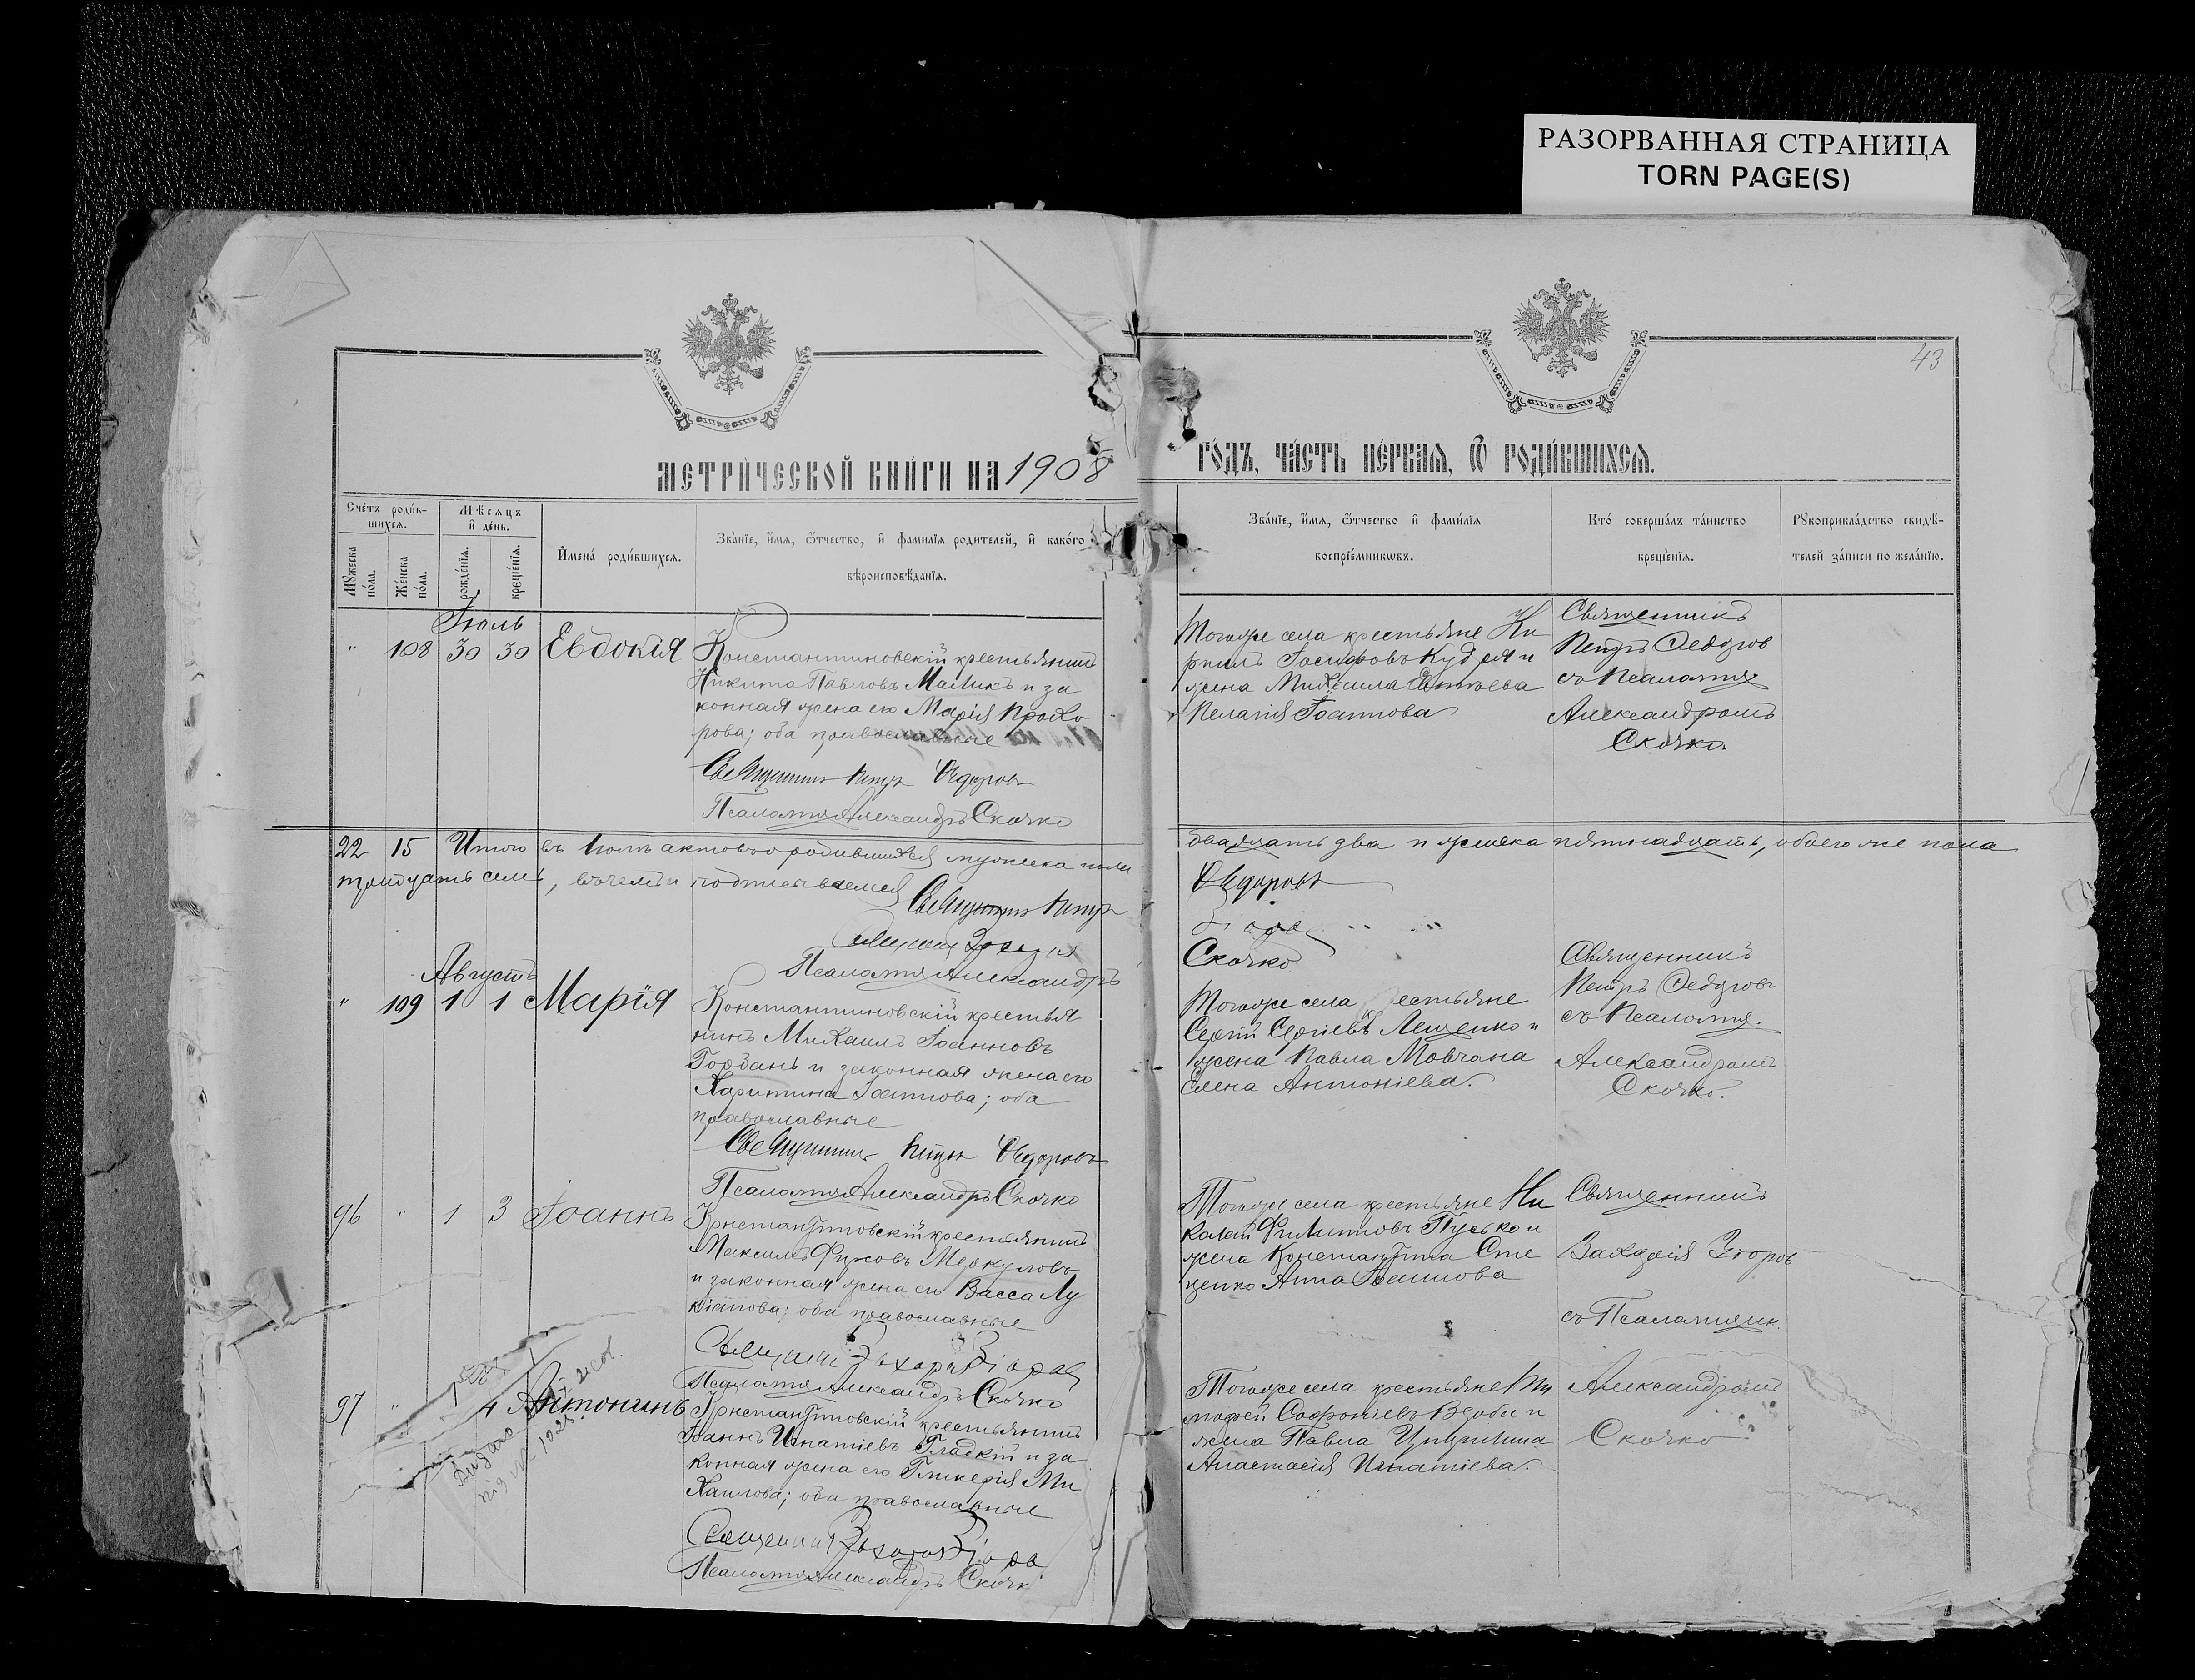 РАЗОРВАННАЯ СТРАНИЦА
TORN PAGE(S)
43
МЕТРИЧЕСКОЙ КНИГИ НА 1908
ГОДЪ, ЧАСТЬ ПЕРВАЯ, Ѿ РОДИВШИХСЯ.
Счетъ родив-
шихся.
Мѣсяцъ
и день.
Мужеска
пола.
Женска
пола.
рожденія.
крещенія.
Имена родившихся.
Званіе, имя, ѿтчество, и фамилія родителей, и какого
вѣроисповѣданія.
Званіе, имя, ѿтчество и фамилія
воспріемниковъ.
Кто совершалъ таинство
крещенія.
Рукоприкладство свидѣ-
телей записи по желанію.
Іюль
" 108 30 30 Евдокія
Константиновскій крестьянинъ
Никита Павловъ Маликъ и за
конная жена его Марія Прохо
рова; оба православные
Священникъ Петръ Федоровъ
Псаломщ Александръ Скочко
Тогоже села крестьяне Ки
риллъ Іосифовъ Кудря и
жена Михаила
Пелагія Іоаннова
Священникъ
Петръ Федоров
съ Псаломщ
Александромъ
Скочко.
22 15 Итого въ Іюлѣ актовъ о родившихся мужеска пола
двадцать два и женска пятнадцать, обоего же пола
тридцать семь, въ чемъ и подписываемся
Священникъ Петръ
Федоровъ
Псаломщ Александръ
Скочко
Августъ
" 109 1 1 Марія
Константиновскій крестья
нинъ Михаилъ Іоанновъ
Горбань и законная жена его
Харитина Іоаннова; оба
православные
Священникъ Петръ Федоровъ
Псаломщ Александръ Скочко
Тогоже села крестьяне
Сергій Сергіевъ Лещенко и
жена Павла Мовчана
Елена Антоніева.
Священникъ
Петръ Федоровъ
съ Псаломщ.
Александромъ
Скочко.
96 " 1 3 Іоаннъ
Константиновскій крестьянинъ
Максимъ Фирсовъ Меркуловъ
и законная жена его Васса Лу
кіанова; оба православные
Священникъ Захарія
Псаломщ Александръ Скочко
Тогоже села крестьяне Ни
колай Филипповъ Пусько и
жена Константина Сте
ценко Анна Іоаннова
Священникъ
Захарія
съ Псаломщик.
97 " 4 Антонинъ
Константиновскій крестьянинъ
Іоаннъ Игнатіевъ Гладкій и за
конная жена его Гликерія Ми
хаилова; оба православные
Священникъ
Псаломщ Александръ Скочк
Тогоже села крестьяне Ти
мофей Софроніевъ Верба и
жена Павла
Анастасія Игнатіева.
Александромъ
Скочко
Видано